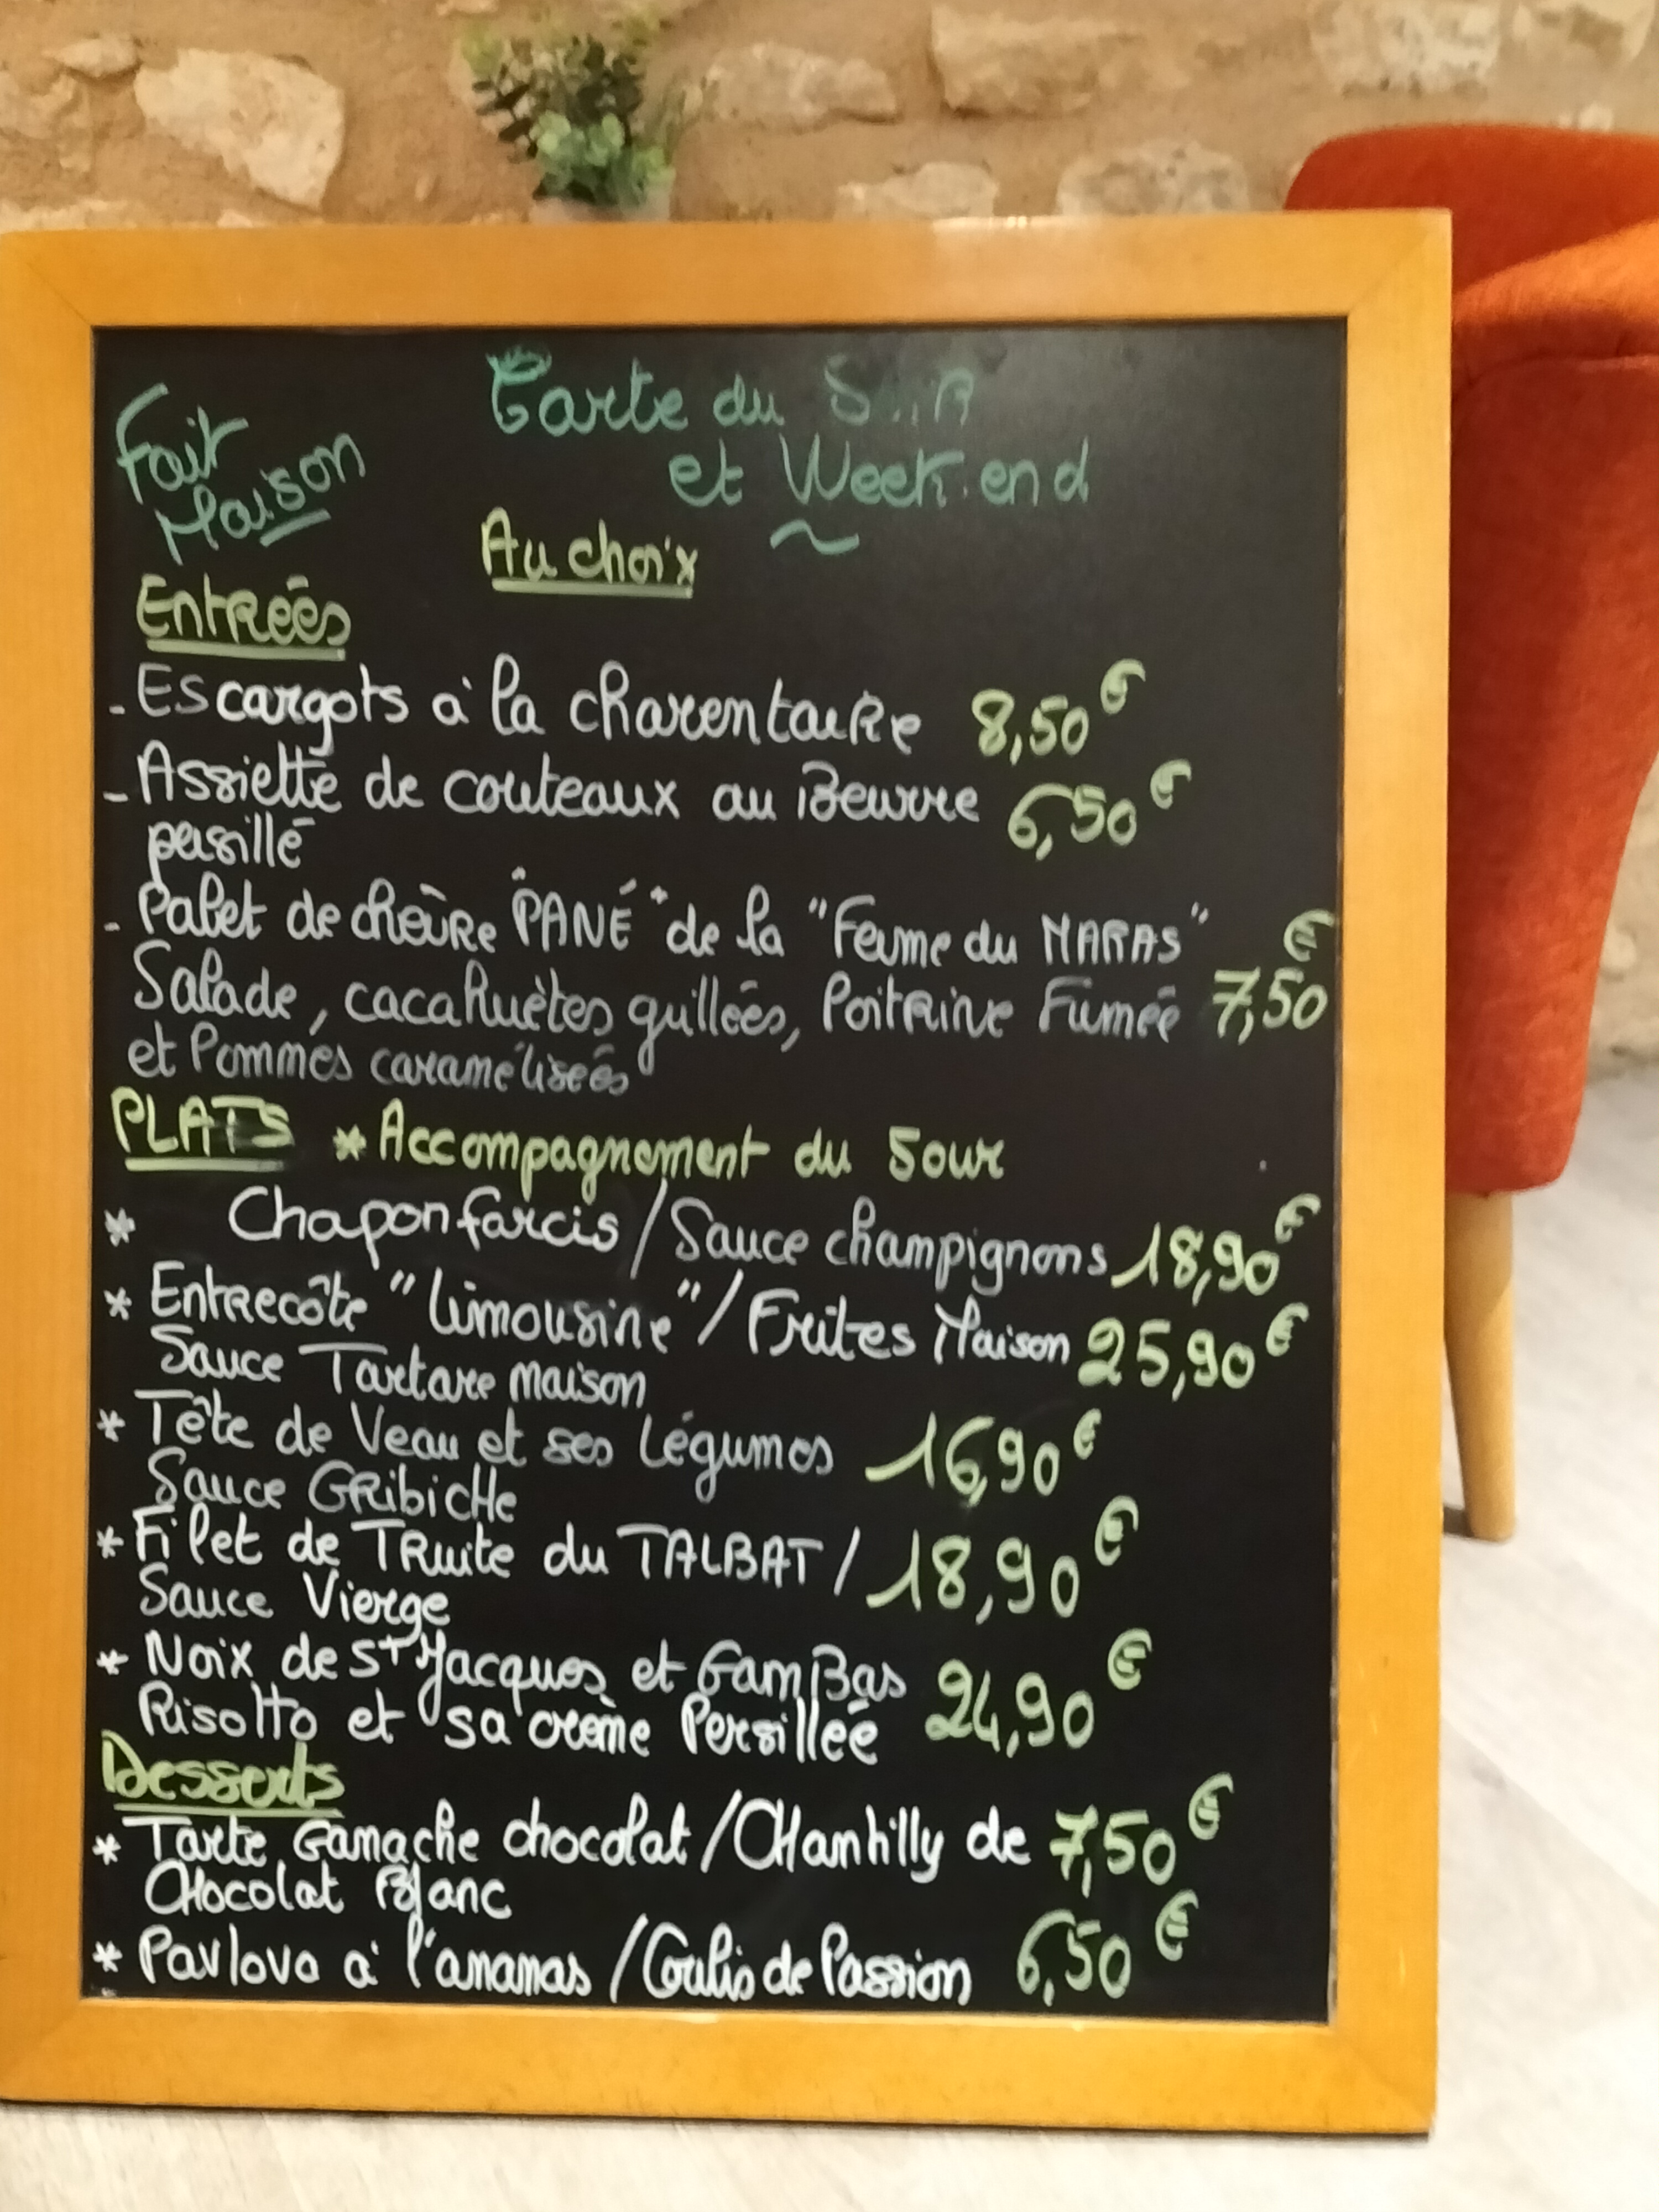 Fait
Maison
Carte du
et Week.end
Au choix
Entrées
- Escargots à la charentaire 8,50€
- Assiette de couteaux au Beurre 6,50€
persillé
- Palet de chèvre "PANÉ" de la "Ferme du MARAS"
Salade, cacahuètes grillées, Poitrine Fumée 7,50€
et Pommes caramélisées
PLATS * Accompagnement du Jour
* Chapon farcis / Sauce champignons 18,90€
* Entrecôte "limousine" / Frites Maison 25,90€
Sauce Tartare maison
* Tête de Veau et ses Légumes 16,90€
Sauce GRibicHe
* Filet de TRuite du TALBAT / 18,90€
Sauce Vierge
* Noix de St Jacques et GamBas 24,90€
Risotto et sa crème Persillée
Desserts
* Tarte Ganache chocolat / CHantilly de 7,50€
CHocolat Blanc
* Pavlova à l'ananas / Coulis de Passion 6,50€